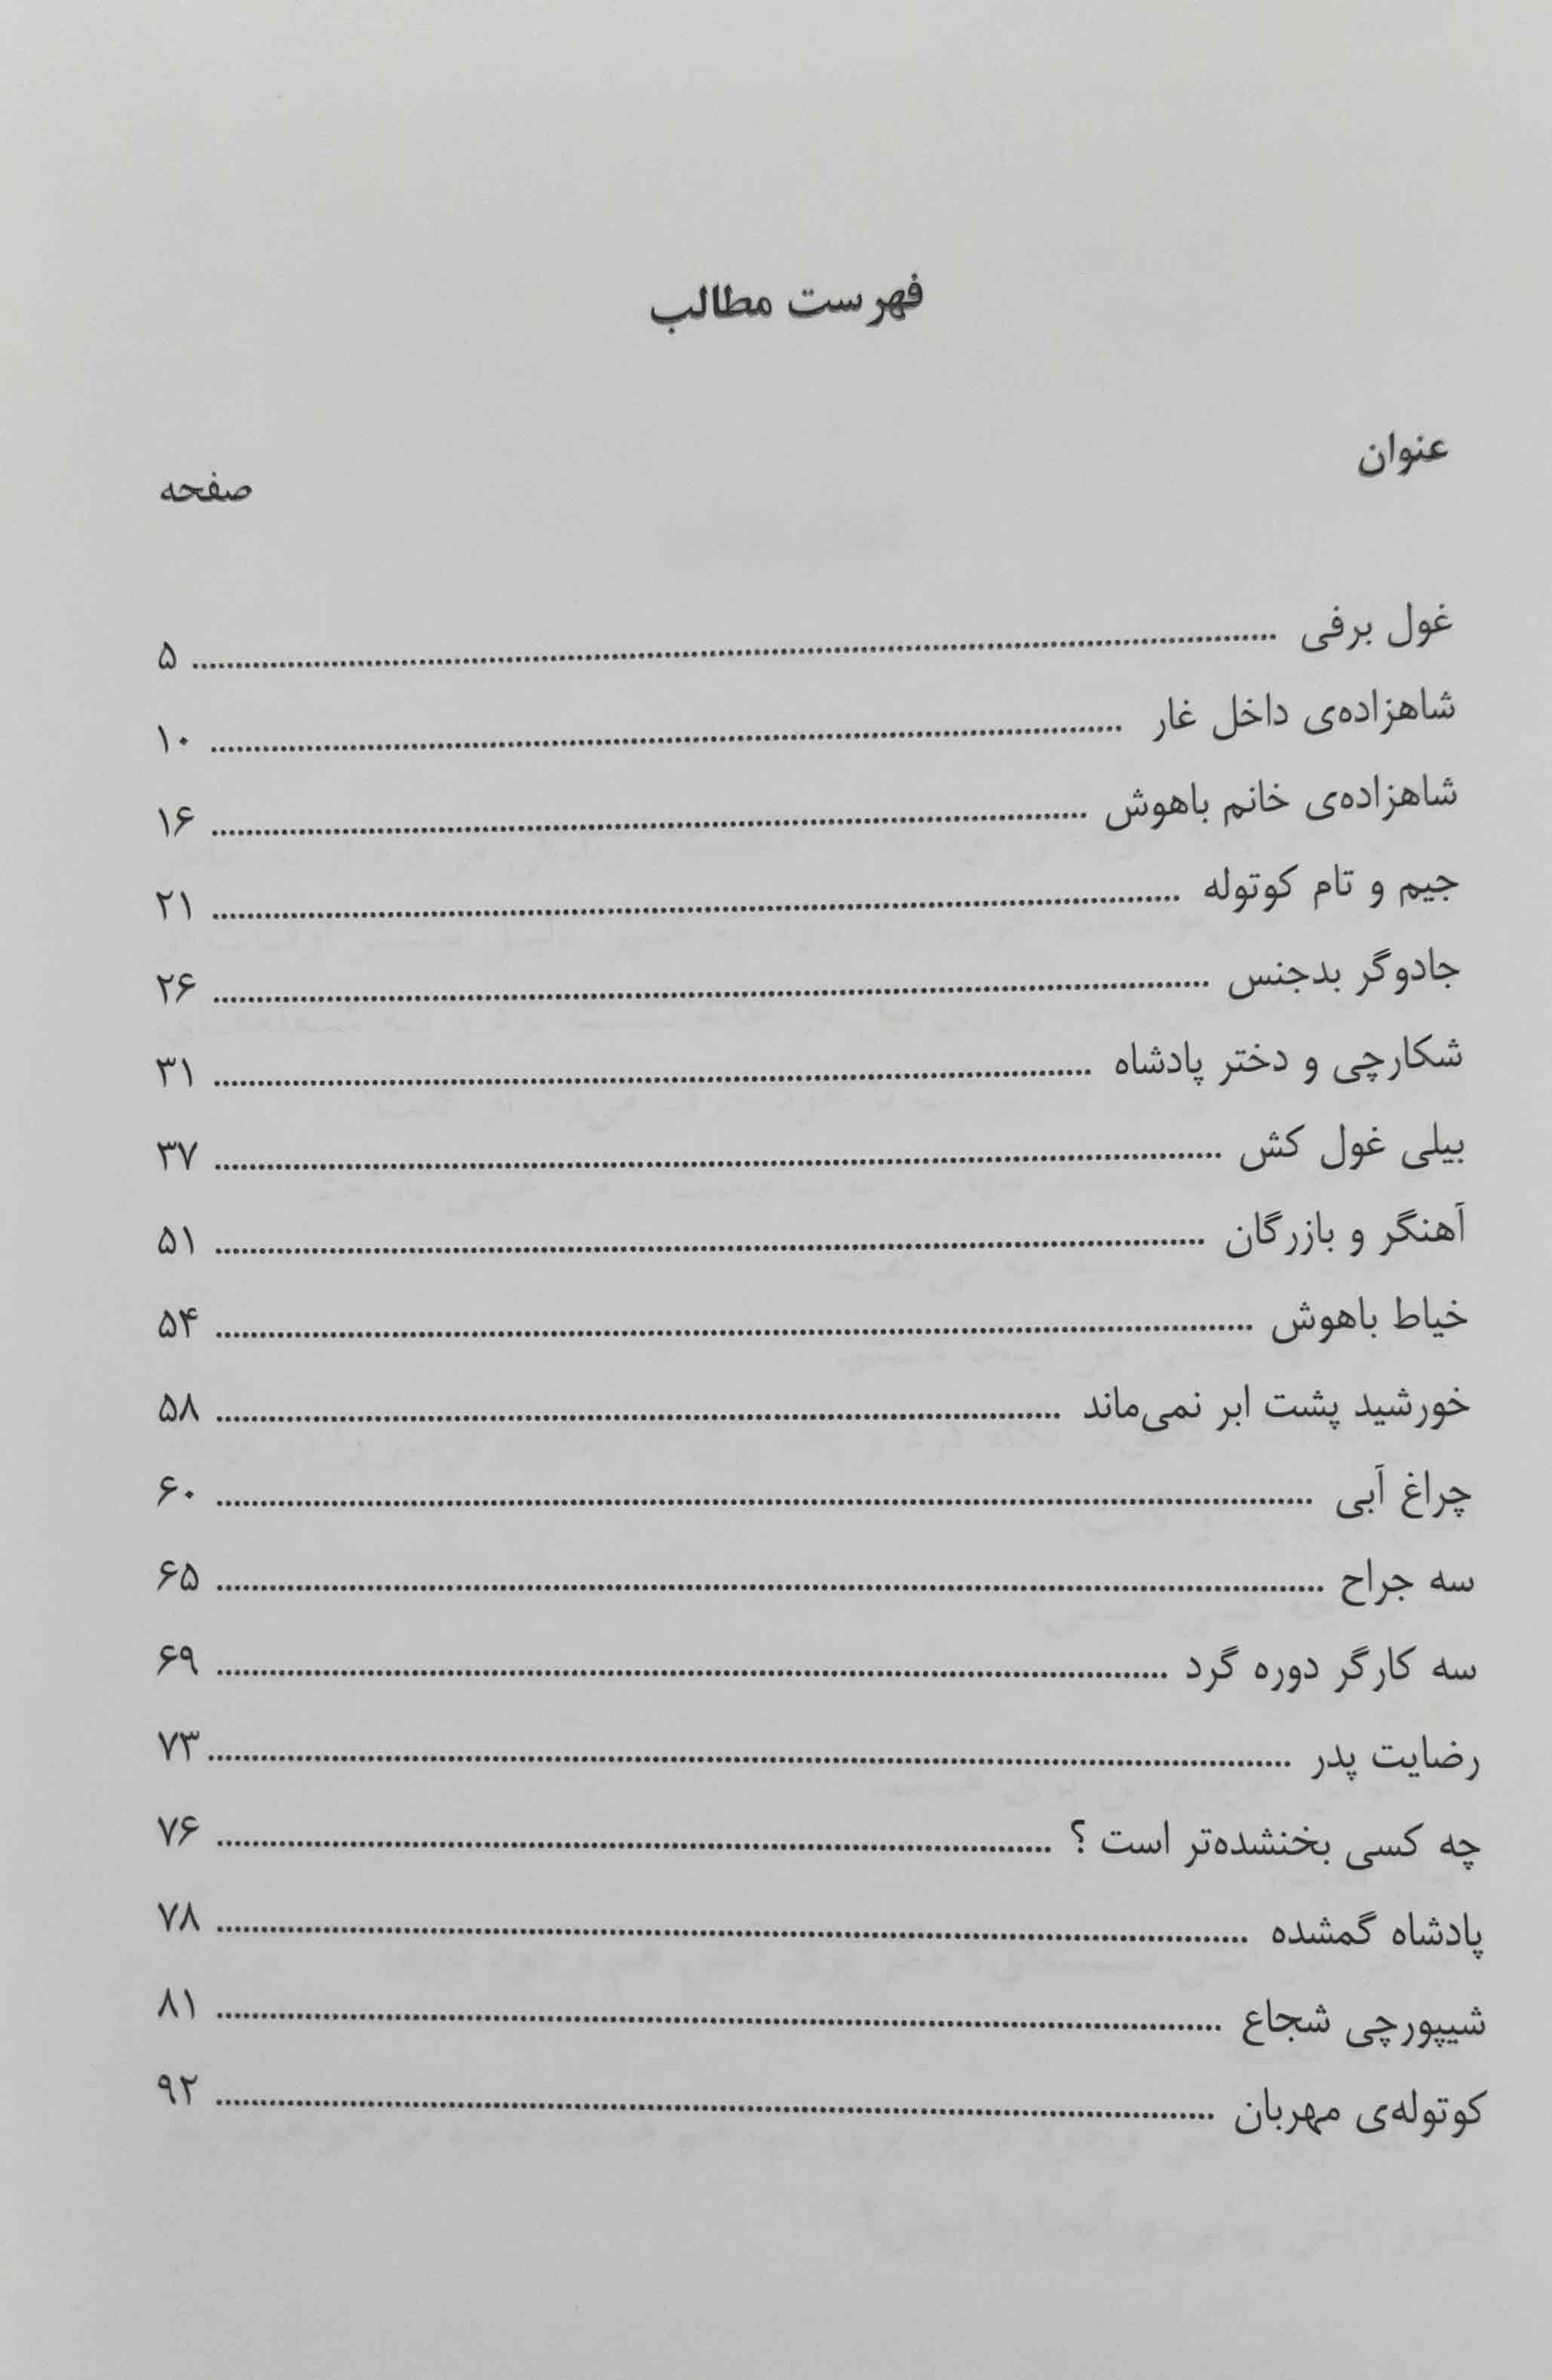 فهرست مطالب
عنوان
صفحه
غول برفی ........................ ۵
شاهزاده‌ی داخل غار ........................ ۱۰
شاهزاده‌ی خانم باهوش ........................ ۱۶
جیم و تام کوتوله ........................ ۲۱
جادوگر بدجنس ........................ ۲۶
شکارچی و دختر پادشاه ........................ ۳۱
بیلی غول کش ........................ ۳۷
آهنگر و بازرگان ........................ ۵۱
خیاط باهوش ........................ ۵۴
خورشید پشت ابر نمی‌ماند ........................ ۵۸
چراغ آبی ........................ ۶۰
سه جراح ........................ ۶۵
سه کارگر دوره گرد ........................ ۶۹
رضایت پدر ........................ ۷۳
چه کسی بخنشده‌تر است ؟ ........................ ۷۶
پادشاه گمشده ........................ ۷۸
شیپورچی شجاع ........................ ۸۱
کوتوله‌ی مهربان ........................ ۹۲